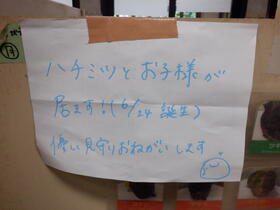 ハチミツとお子様が
居ます!(6/24 誕生)
優しい見守りおねがいします